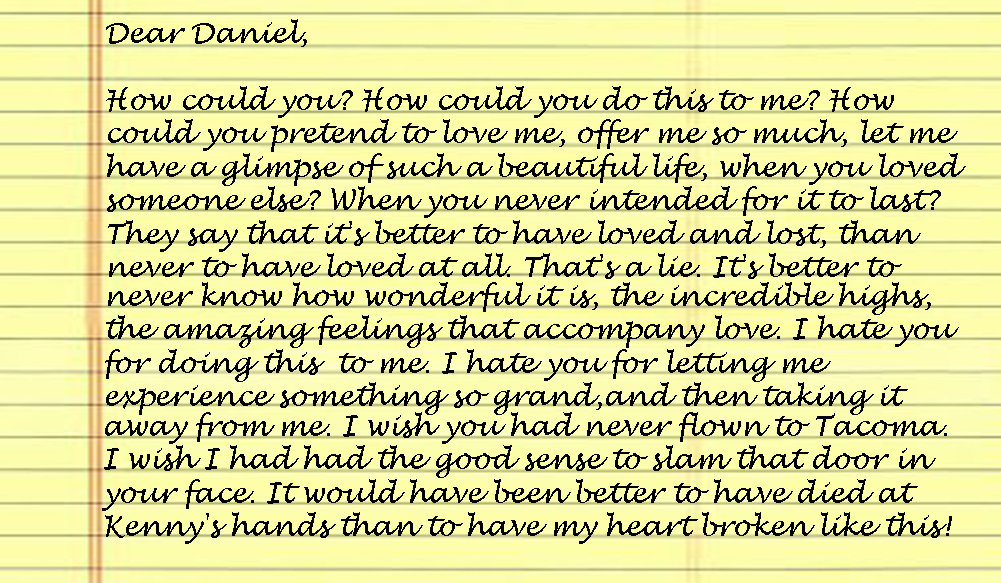 Dear Daniel,
How could you? How could you do this to me? How
could you pretend to love me, offer me so much, let me
have a glimpse of such a beautiful life, when you loved
someone else? When you never intended for it to last?
They say that it's better to have loved and lost, than
never to have loved at all. That's a lie. It's better to
never know how wonderful it is, the incredible highs,
the amazing feelings that accompany love. I hate you
for doing this  to me. I hate you for letting me
experience something so grand,and then taking it
away from me. I wish you had never flown to Tacoma.
I wish I had had the good sense to slam that door in
your face. It would have been better to have died at
Kenny's hands than to have my heart broken like this!